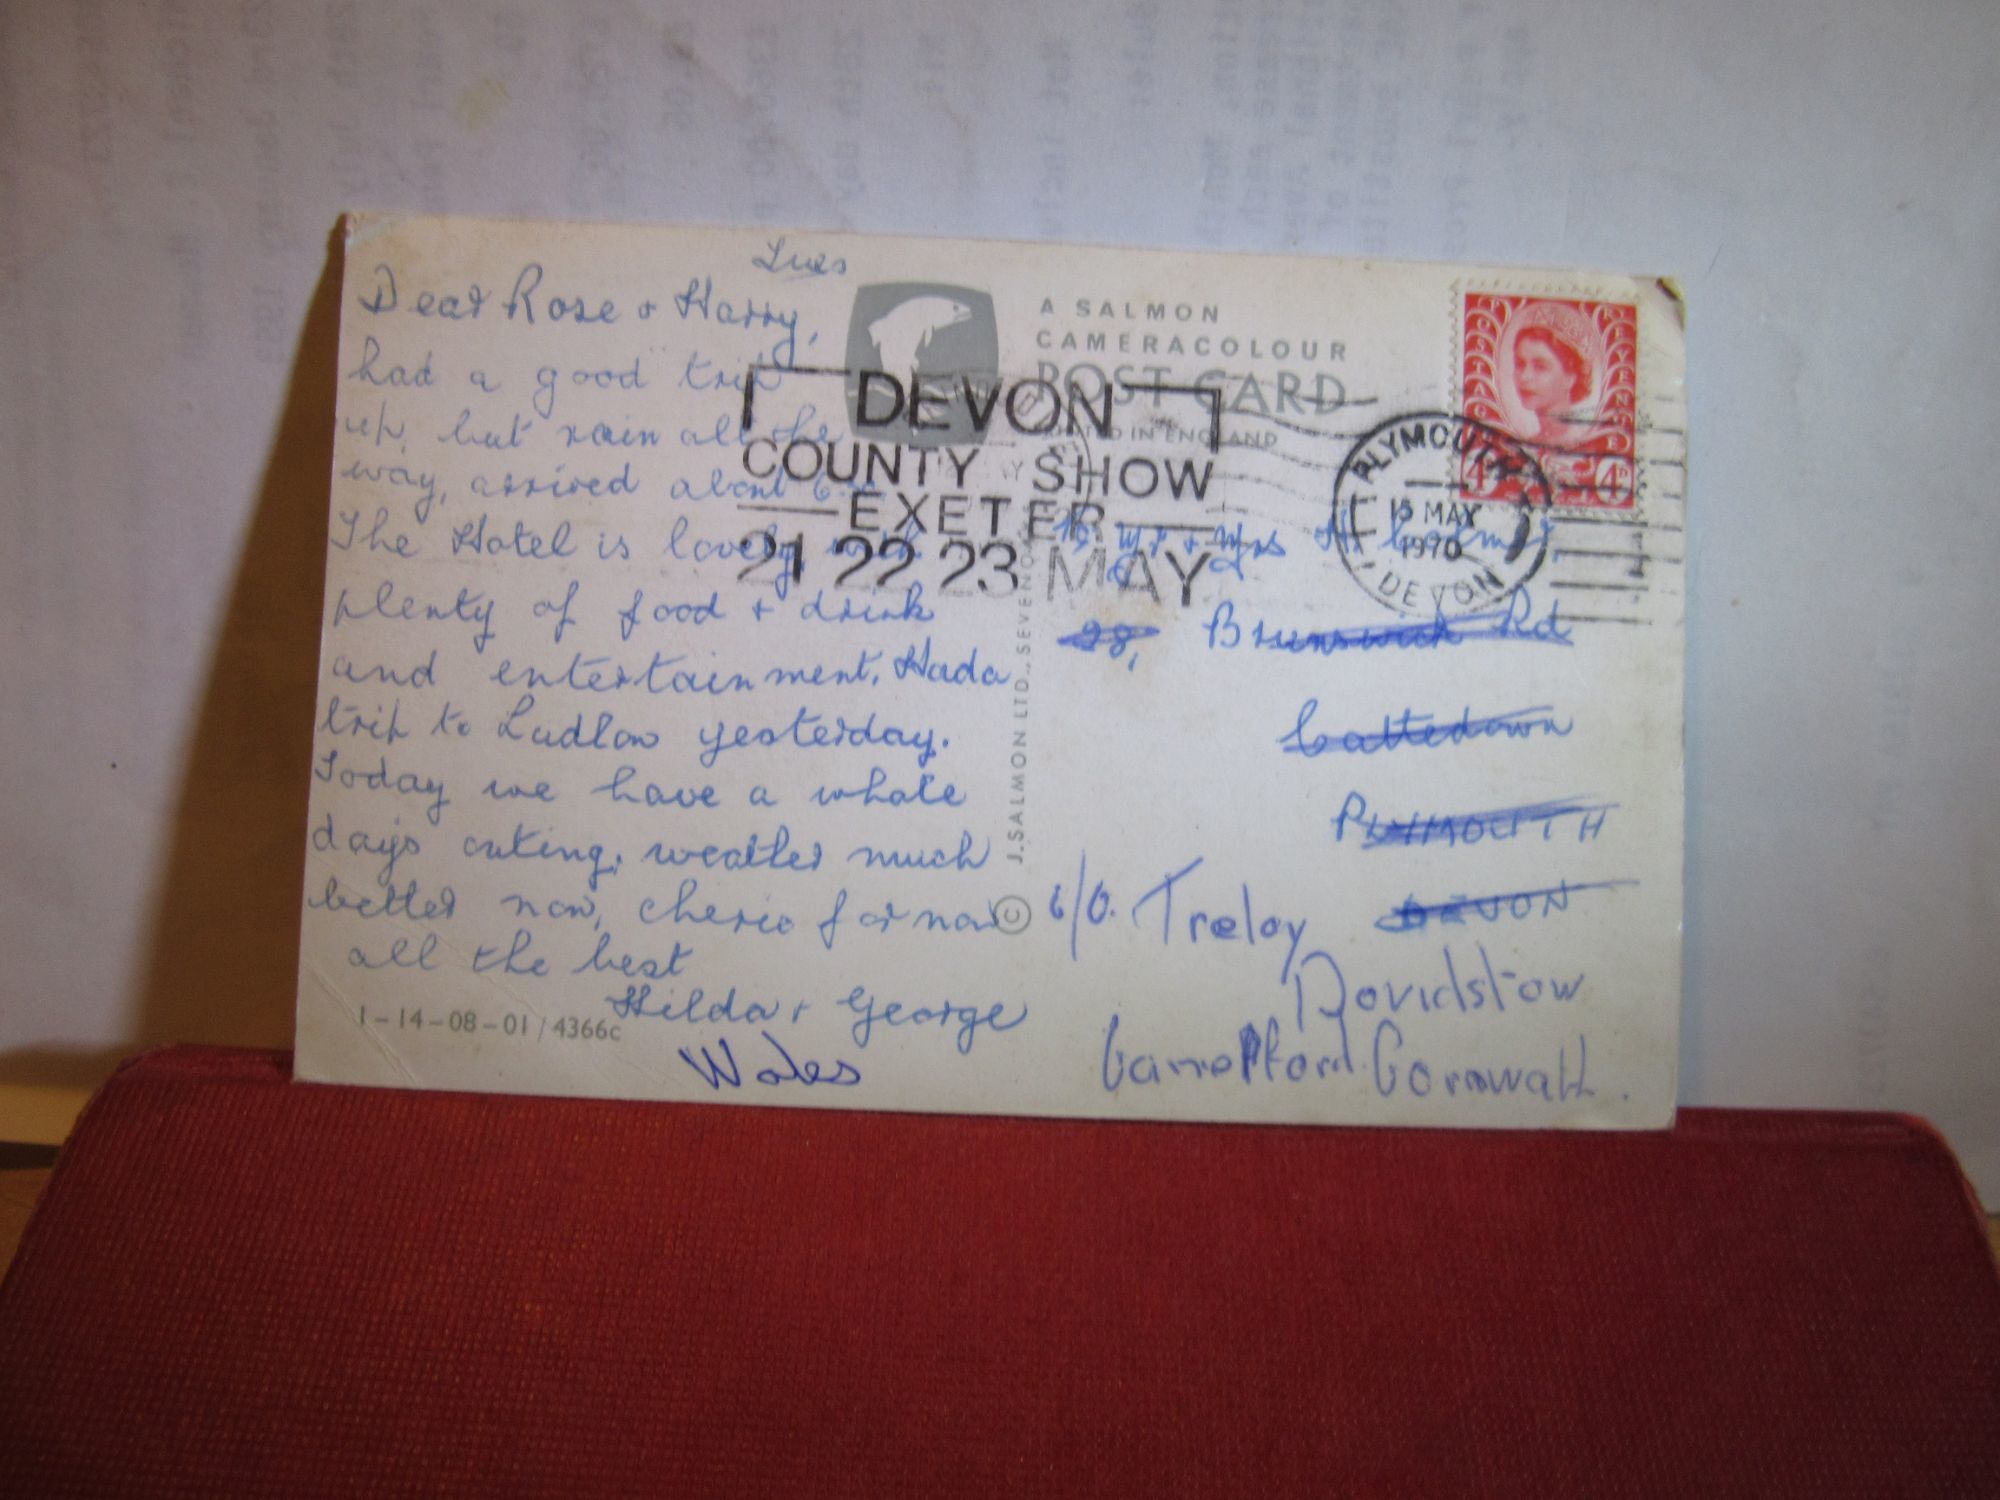 Tues
Dear Rose + Harry,
had a good trip
up, but rain all the
way, arrived about
The Hotel is lovely,
plenty of food + drink
and entertainment. Had a
trip to Ludlow yesterday.
Today we have a whole
days outing, weather much
better now, cherio for now
all the best
Hilda + George
Wales
1-14-08-01/4366c
A SALMON
CAMERACOLOUR
POST CARD
PRINTED IN ENGLAND
DEVON
COUNTY SHOW
EXETER
21 22 23 MAY
© J. SALMON LTD., SEVENOAKS
POSTAGE REVENUE
4D 4D
PLYMOUTH
15 MAY
1970
DEVON
Mr + Mrs H.
28, Brunswick Rd
Cattedown
PLYMOUTH
DEVON
c/o. Treloy
Davidstow
Camelford. Cornwall.